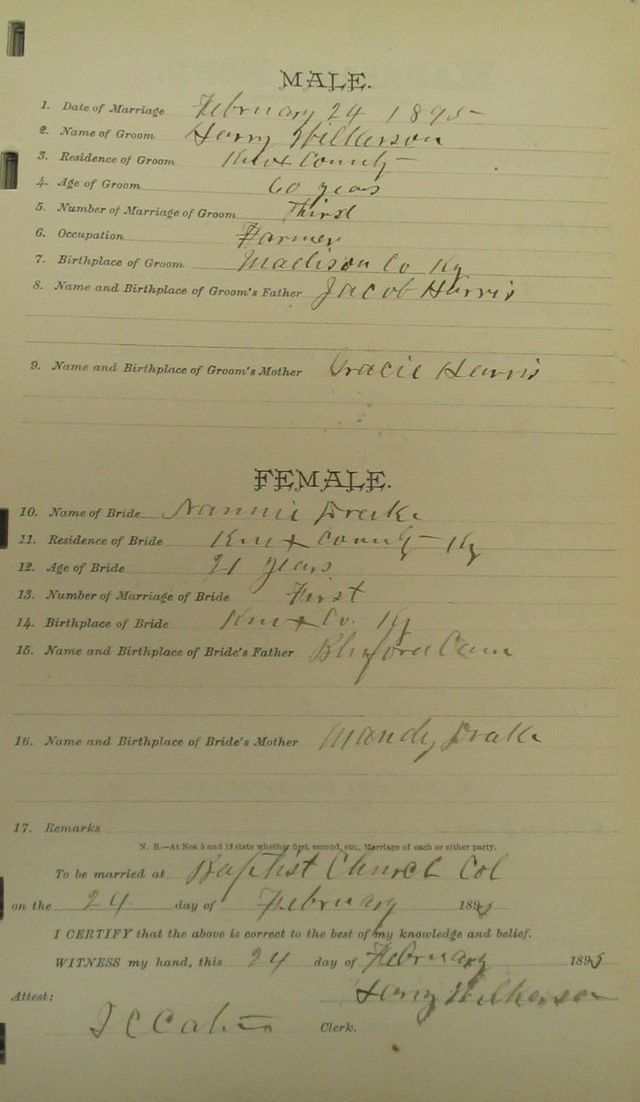 MALE.
1. Date of Marriage February 24 1895
2. Name of Groom Harry Wilkerson
3. Residence of Groom Knox County
4. Age of Groom 60 years
5. Number of Marriage of Groom Third
6. Occupation Farmer
7. Birthplace of Groom Madison Co Ky
8. Name and Birthplace of Groom's Father Jacob Harris
9. Name and Birthplace of Groom's Mother Gracie Harris
FEMALE.
10. Name of Bride Nannie Drake
11. Residence of Bride Knox County Ky
12. Age of Bride 21 years
13. Number of Marriage of Bride First
14. Birthplace of Bride Knox Co. Ky
15. Name and Birthplace of Bride's Father Bluford
16. Name and Birthplace of Bride's Mother Mandy Drake
17. Remarks
N. B.—At Nos. 5 and 13 state whether first, second, etc., Marriage of each or either party.
To be married at Baptist Church Col
on the 24 day of February 1895
I CERTIFY that the above is correct to the best of my knowledge and belief.
WITNESS my hand, this 24 day of February 1895
Harry Wilkerson
Attest:
Clerk.